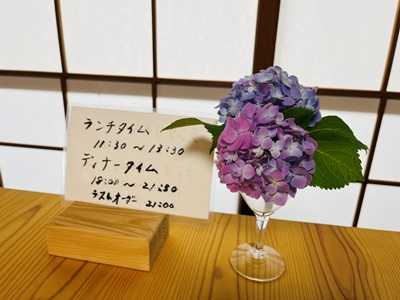 ランチタイム
11:30〜13:30
ディナータイム
18:00〜21:30
ラストオーダー 21:00